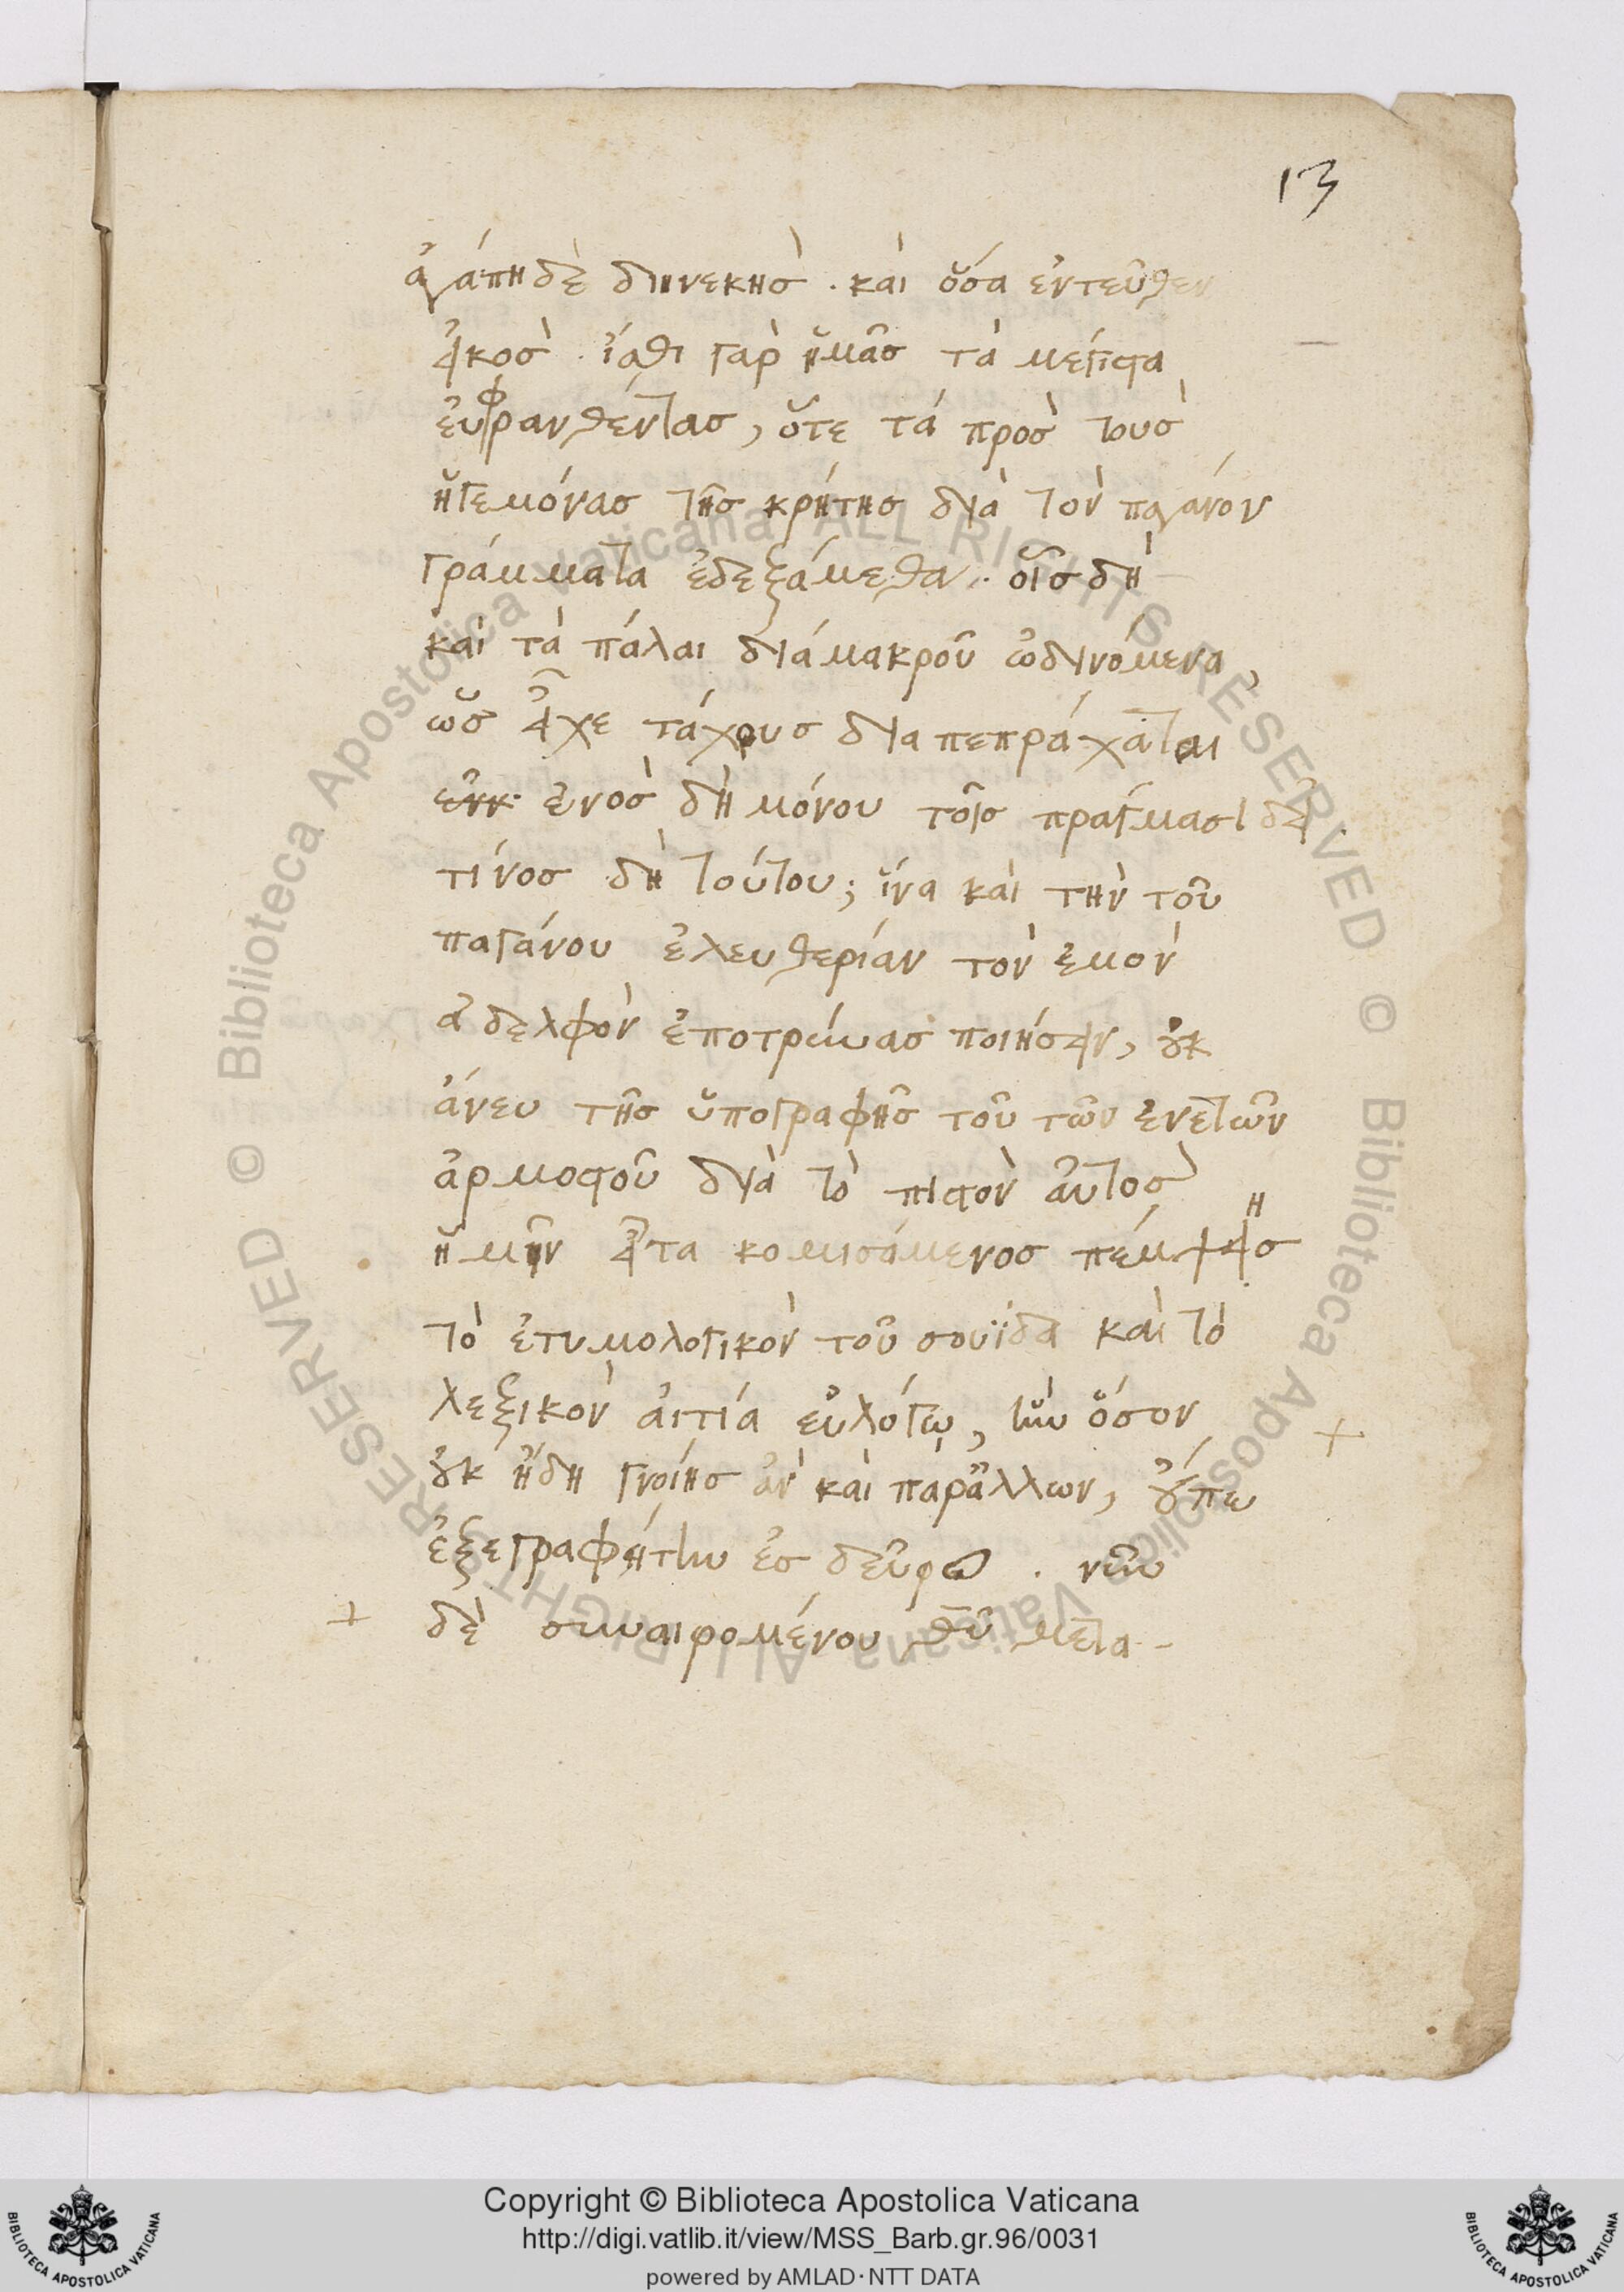 13
ἀγάπη δὲ διηνεκὴσ . καὶ ὅσα ἐντεῦθεν
εἰκοσ̀ . ἴσθι γὰρ ἡμᾶσ τὰ μέγιστα
ἐυφρανθέντασ, ὅτε τὰ πρὸσ τοὺσ
ἡγεμόνασ τῆσ κρήτησ διὰ τὸν παγάνον
γράμματα ἐδεξάμεθα . οἷσ δὴ
καὶ τὰ πάλαι διάμακροῦ ὠδινόμενα,
ὡσ εἶχε τάχουσ διαπεπράχαται
ἑνὸσ δὴ μόνου τοῖσ πράγμασι δεῖ .
τίνοσ δὴ τούτου; ἵνα καὶ τὴν τοῦ
παγάνου ἐλευθερίαν τὸν ἐμὸν
ἀδελφὸν ἐποτρύνασ ποιήσειν, ὀυκ
ἄνευ τῆσ ὑπογραφῆσ τοῦ τῶν ἐνετῶν
ἁρμοστοῦ διὰ τὸ πιστὸν ἀυτὸσ
ἡμῖν εἶτα κομισάμενοσ πέμψησ
τὸ ἐτυμολογικὸν τοῦ σουΐδα καὶ τὸ
λεξικὸν ἀιτία ἐυλόγω, ἣν ὅσον
ὀυκ ἤδη γνοίησ ἂν καὶ παρἄλλων, ὀύπω
ἐξεγραφήτην ἐσ δεῦρο . νῦν
δὲ συναιρομένου θῦ μετα-
Copyright © Biblioteca Apostolica Vaticana
http://digi.vatlib.it/view/MSS_Barb.gr.96/0031
powered by AMLAD · NTT DATA
BIBLIOTECA APOSTOLICA VATICANA
BIBLIOTECA APOSTOLICA VATICANA
© Biblioteca Apostolica Vaticana ALL RIGHTS RESERVED
© Biblioteca Apostolica Vaticana ALL RIGHTS RESERVED